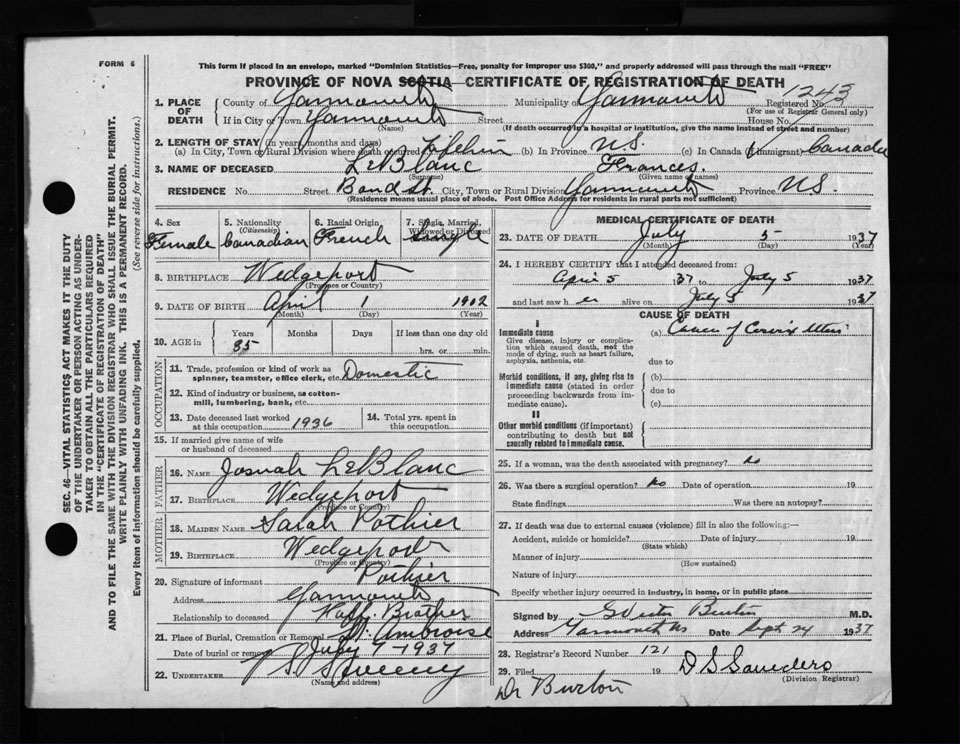 FORM 6
This form if placed in an envelope, marked "Dominion Statistics—Free, penalty for improper use $300," and properly addressed will pass through the mail "FREE"
PROVINCE OF NOVA SCOTIA—CERTIFICATE OF REGISTRATION OF DEATH
1243
1. PLACE OF DEATH
County of Yarmouth Municipality of Yarmouth Registered No.
(For use of Registrar General only)
If in City or Town Yarmouth Street House No.
(Name) (If death occurred in a hospital or institution, give the name instead of street and number)
2. LENGTH OF STAY (in years, months and days)
(a) In City, Town or Rural Division where death occurred Lifetime (b) In Province N.S. (c) In Canada (if immigrant) Canada
3. NAME OF DECEASED LeBlanc Frances.
(Surname) (Given name or names)
RESIDENCE No. Street Bond St. City, Town or Rural Division Yarmouth Province N.S.
(Residence means usual place of abode. Post Office Address for residents in rural parts not sufficient)
4. Sex Female
5. Nationality (Citizenship) Canadian
6. Racial Origin French
7. Single, Married, Widowed or Divorced Single
8. BIRTHPLACE Wedgeport
(Province or Country)
9. DATE OF BIRTH April 1 1902
(Month) (Day) (Year)
10. AGE in Years 35 Months Days If less than one day old
hrs. or min.
OCCUPATION
11. Trade, profession or kind of work as spinner, teamster, office clerk, etc. Domestic
12. Kind of industry or business, as cotton-mill, lumbering, bank, etc.
13. Date deceased last worked at this occupation 1936
14. Total yrs. spent in this occupation
15. If married give name of wife or husband of deceased
FATHER
16. NAME Josuah LeBlanc
17. BIRTHPLACE Wedgeport
(Province or Country)
MOTHER
18. MAIDEN NAME Sarah Pothier
19. BIRTHPLACE Wedgeport
(Province or Country)
20. Signature of informant Pothier
Address Yarmouth
Relationship to deceased Half Brother
21. Place of Burial, Cremation or Removal St. Ambroise
Date of burial or removal July 7 - 1937
22. UNDERTAKER Sweeny
(Name and address)
MEDICAL CERTIFICATE OF DEATH
23. DATE OF DEATH July 5 1937
(Month) (Day) (Year)
24. I HEREBY CERTIFY that I attended deceased from:
April 5 1937 to July 5 1937
and last saw her alive on July 5 1937
CAUSE OF DEATH
I
Immediate cause (a) Cancer of Cervix
Give disease, injury or complication which caused death, not the mode of dying, such as heart failure, asphyxia, asthenia, etc.
due to
Morbid conditions, if any, giving rise to immediate cause (stated in order proceeding backwards from immediate cause).
(b)
due to
(c)
II
Other morbid conditions (if important) contributing to death but not causally related to immediate cause.
25. If a woman, was the death associated with pregnancy? no
26. Was there a surgical operation? no Date of operation 19
State findings Was there an autopsy?
27. If death was due to external causes (violence) fill in also the following:—
Accident, suicide or homicide? Date of injury 19
(State which)
Manner of injury
(How sustained)
Nature of injury
Specify whether injury occurred in industry, in home, or in public place
Signed by Burton M.D.
Address Yarmouth NS Date Sept 24 1937
28. Registrar's Record Number 121
29. Filed 19 D S Saunders
(Division Registrar)
Dr Burton
SEC. 46—VITAL STATISTICS ACT MAKES IT THE DUTY
OF THE UNDERTAKER OR PERSON ACTING AS UNDER-
TAKER TO OBTAIN ALL THE PARTICULARS REQUIRED
IN THE "CERTIFICATE OF REGISTRATION OF DEATH"
AND TO FILE THE SAME WITH THE DIVISION REGISTRAR WHO SHALL ISSUE THE BURIAL PERMIT.
WRITE PLAINLY WITH UNFADING INK. THIS IS A PERMANENT RECORD.
Every item of information should be carefully supplied. (See reverse side for instructions.)